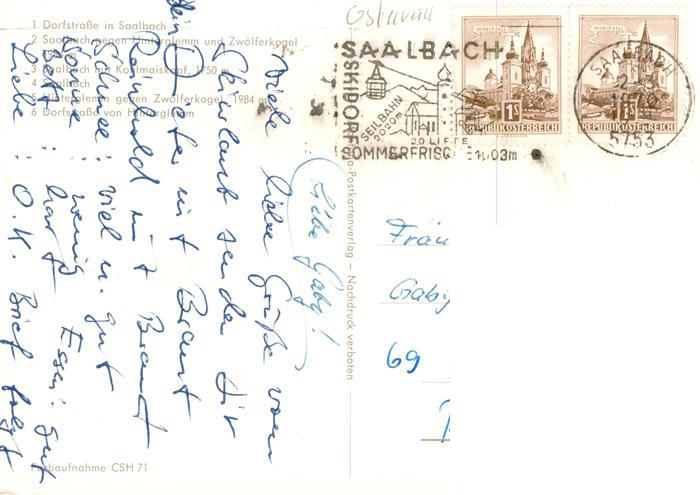 1 Dorfstraße in Saalbach
2 Saalbach gegen Hinterglemm und Zwölferkogel
3 Saalbach mit Kohlmaiskopf, 1750 m
4 Saalbach
5 Hinterglemm gegen Zwölferkogel, 1984 m
6 Dorfstraße von Hinterglemm
Farbaufnahme CSH 71
-Postkartenverlag – Nachdruck verboten
SAALBACH
SKIDORF
SEILBAHN
2020m
20 LIFTE
SOMMERFRISCHE 1003m
1S
REPUBLIK ÖSTERREICH
1S
REPUBLIK ÖSTERREICH
SAALBACH
1970
5753
Liebe Gaby!
Viele liebe Grüße vom
Skiurlaub sendet Dir
Peter mit Braut
Reinhold mit Braut
Schnee: viel u. gut
Sonne: wenig Essen: gut
Bett: hart
Liebe: O.K. Brief folgt
Fräu
Gaby
69